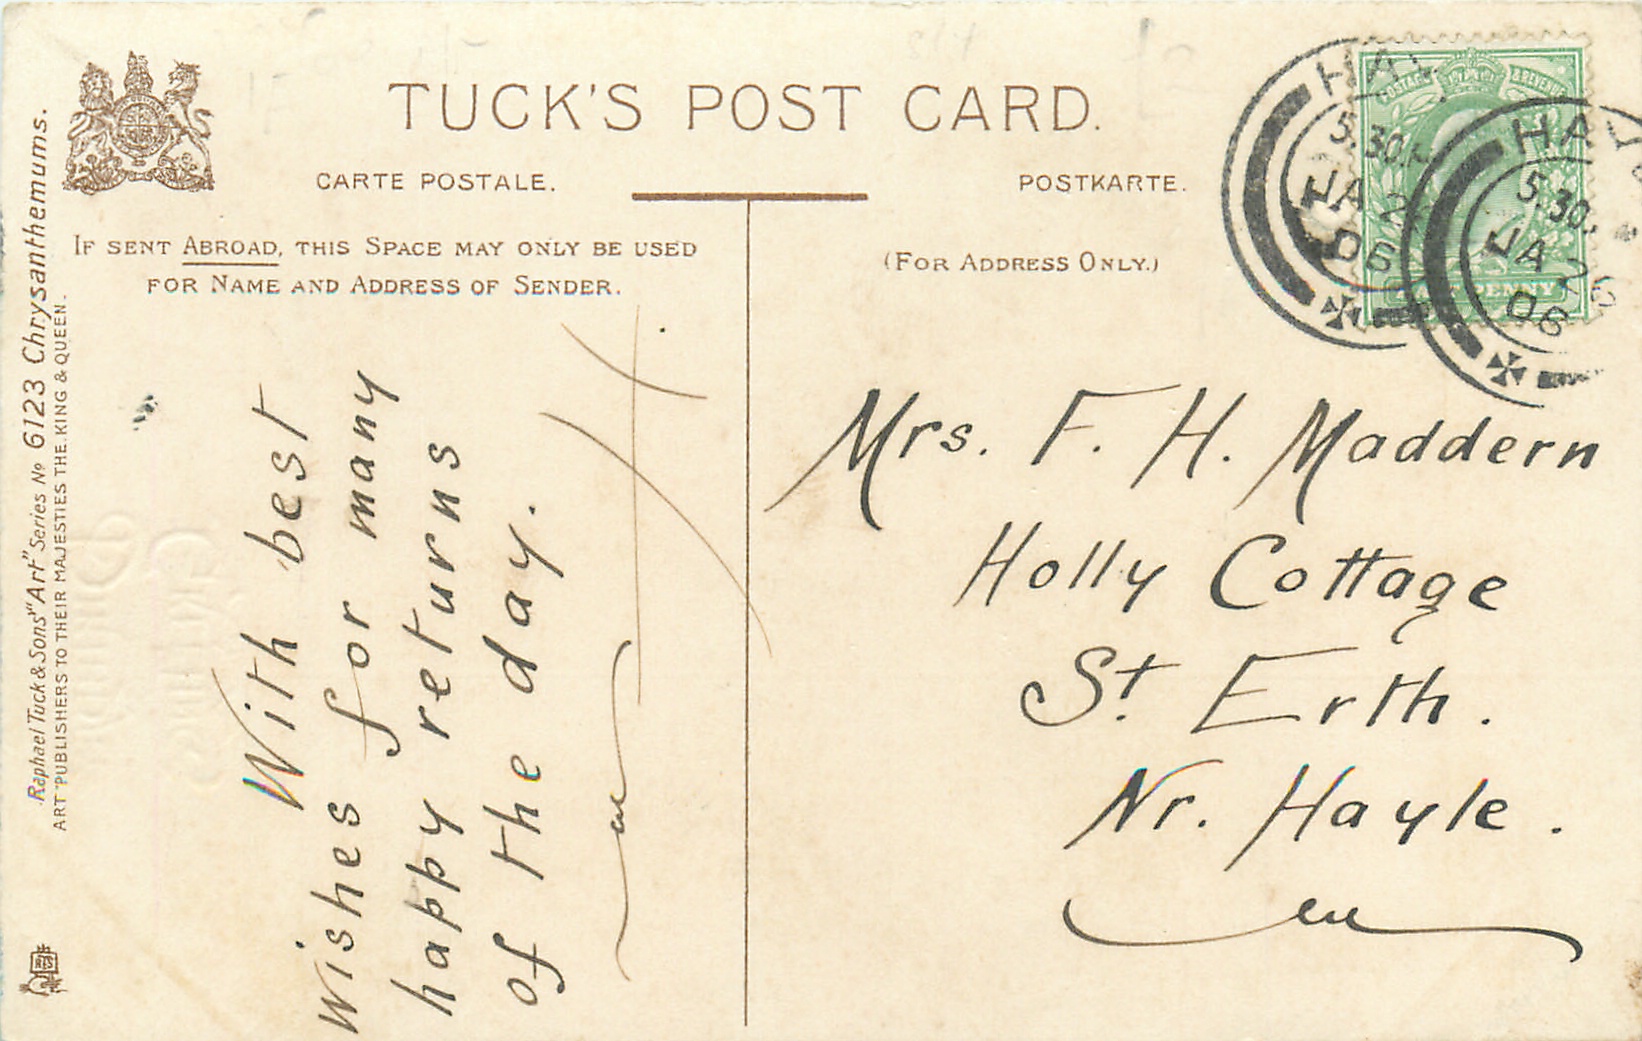 TUCK'S POST CARD.
CARTE POSTALE.
POSTKARTE.
IF SENT ABROAD, THIS SPACE MAY ONLY BE USED
FOR NAME AND ADDRESS OF SENDER.
(FOR ADDRESS ONLY.)
Raphael Tuck & Sons' "Art" Series No 6123 Chrysanthemums.
ART PUBLISHERS TO THEIR MAJESTIES THE KING & QUEEN.
With best
wishes for many
happy returns
of the day.
H
Mrs. F. H. Maddern
Holly Cottage
St. Erth.
Nr. Hayle.
POSTAGE & REVENUE
PENNY
5.30.
06
HAY
5.30.
26
06